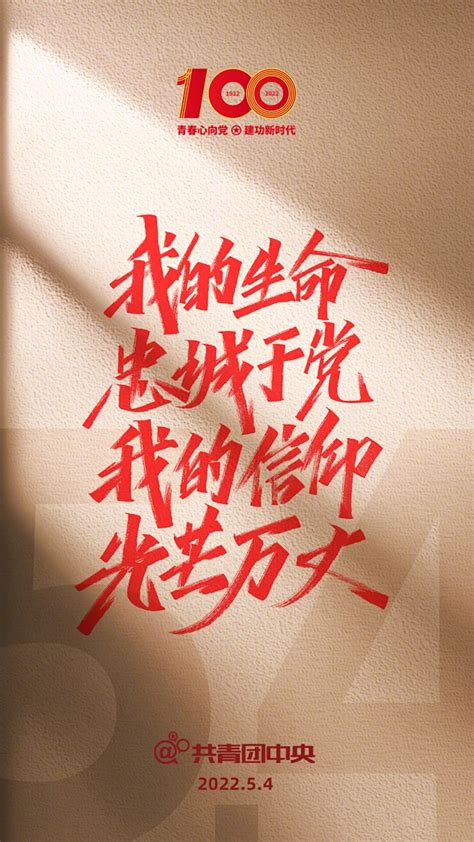 100
1922 2022
青春心向党 建功新时代
我的生命
忠诚于党
我的信仰
光芒万丈
5.4
@共青团中央
2022.5.4